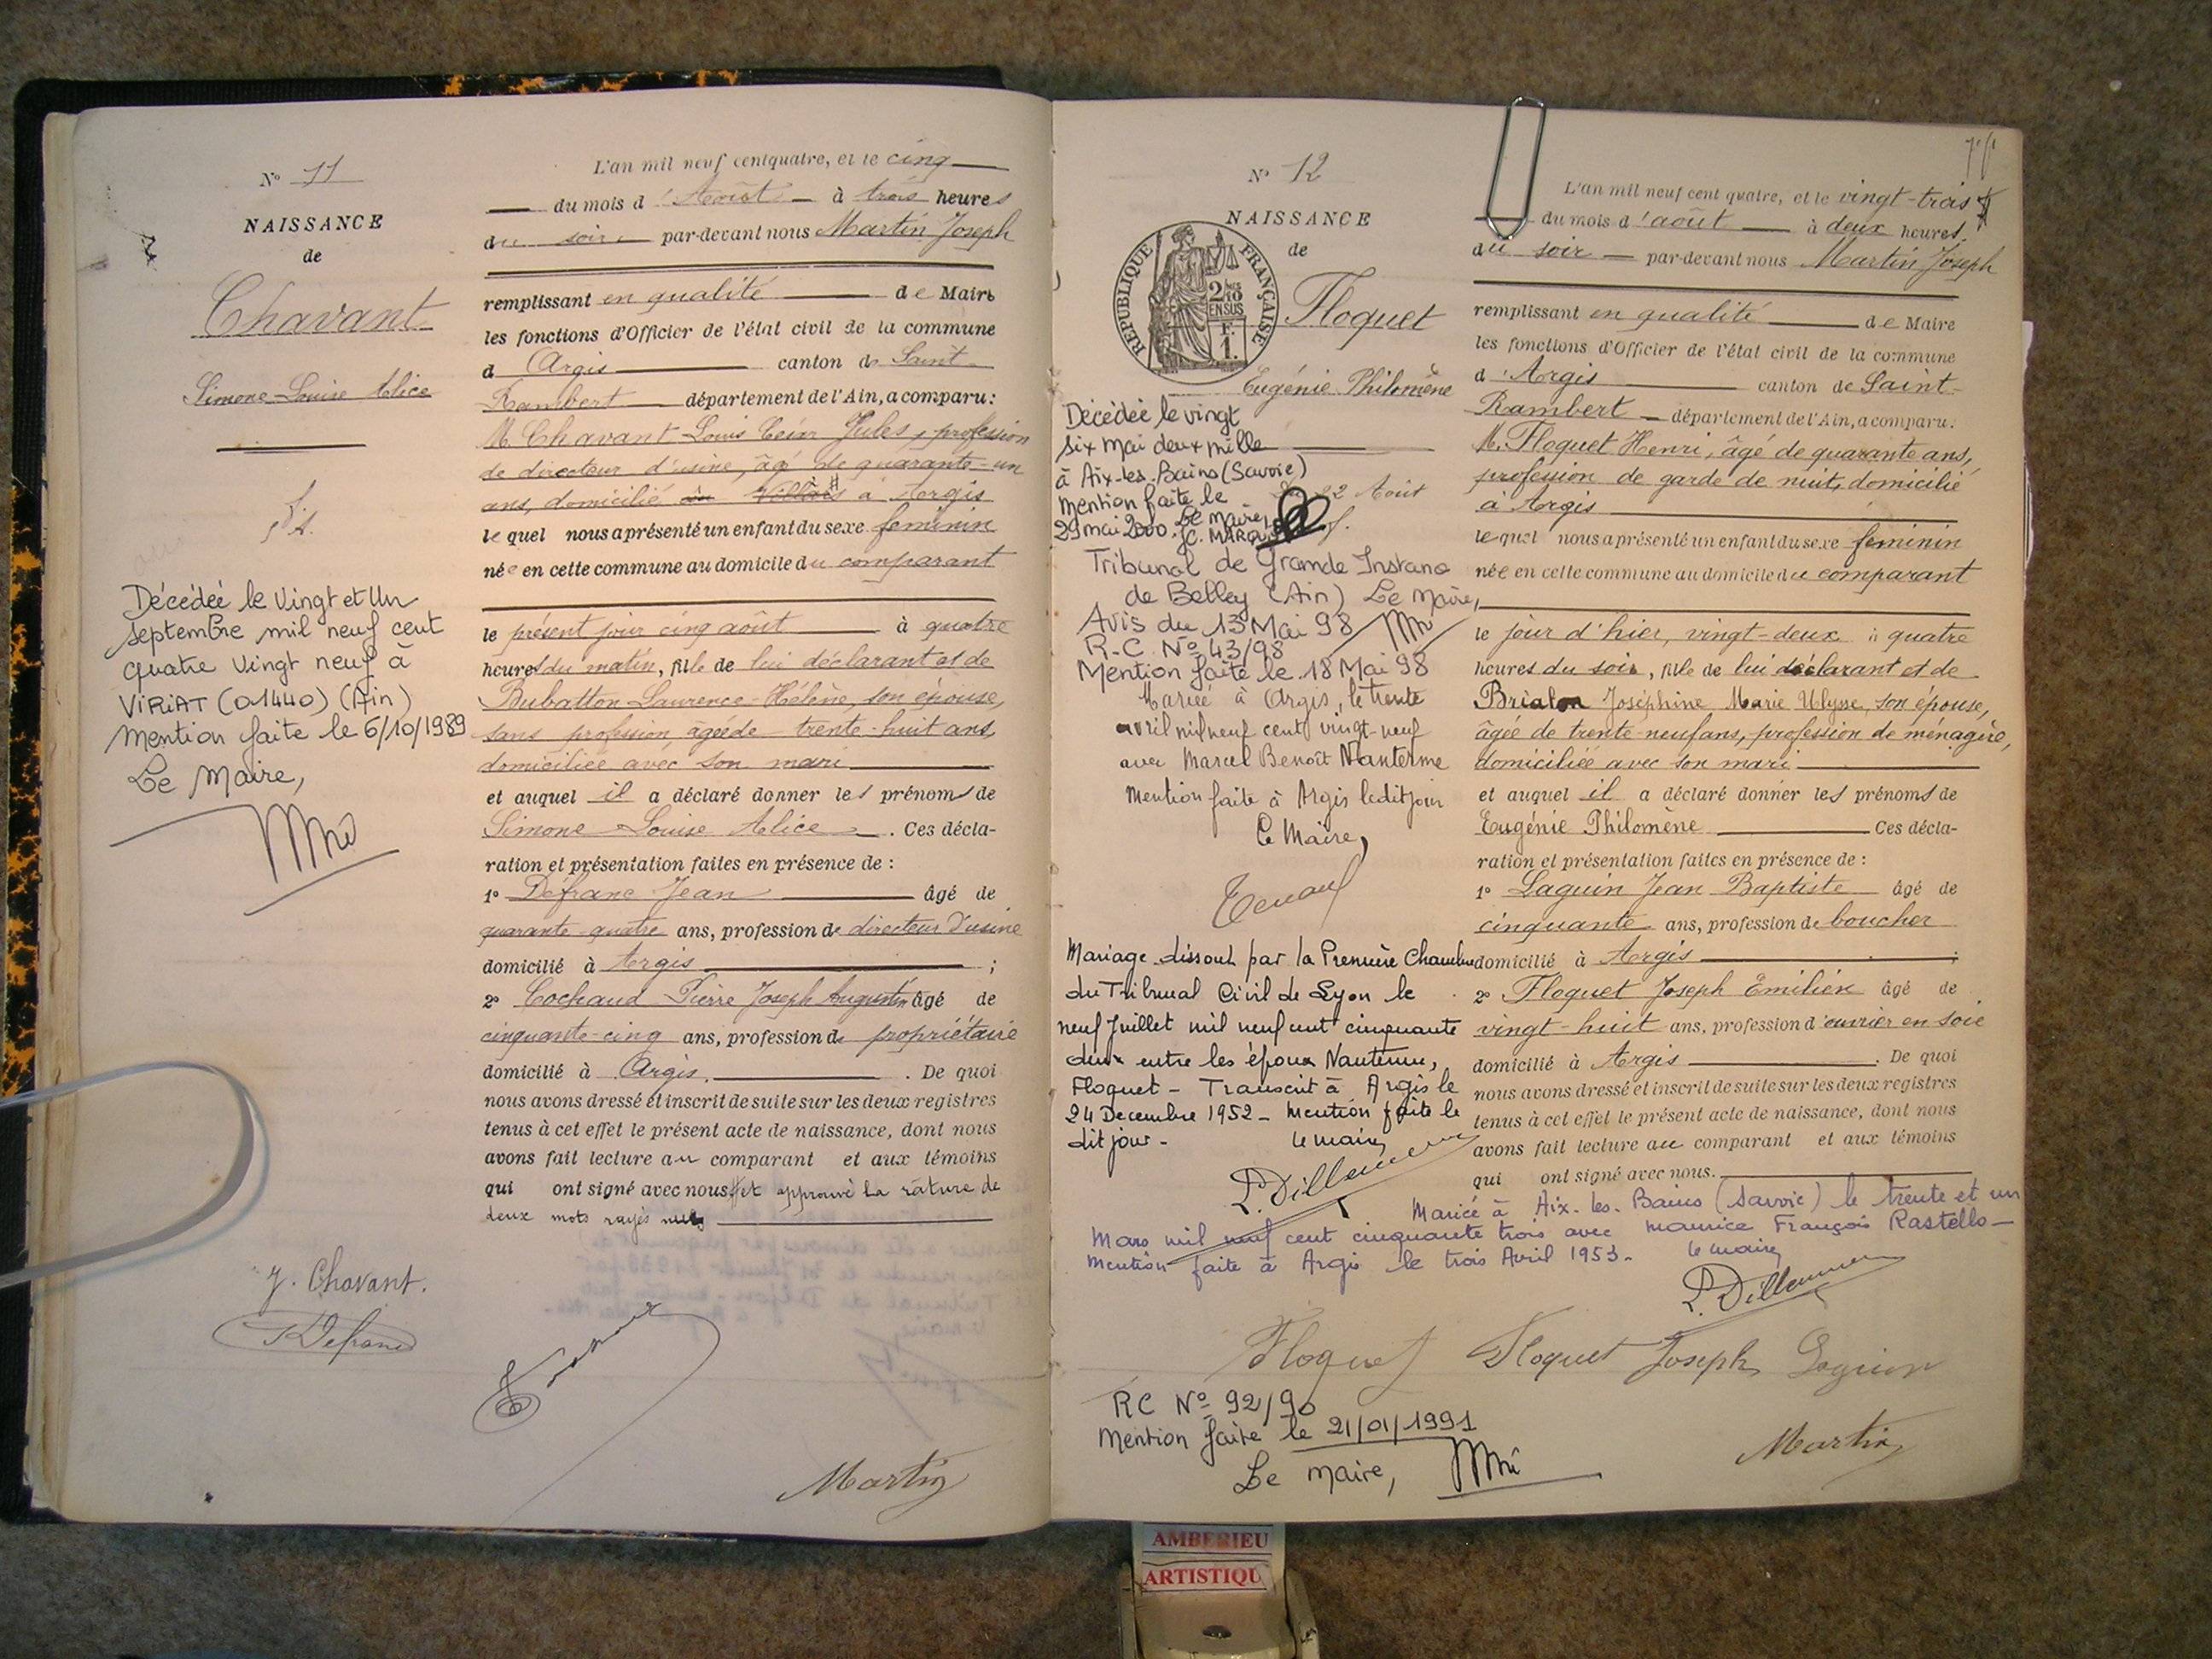 N° 11
NAISSANCE
de
Chavant
Simone Louise Alice
Décédée le Vingt et Un
septembre mil neuf cent
quatre vingt neuf à
VIRIAT (01440) (Ain)
Mention faite le 6/10/1989
Le Maire,
L'an mil neuf cent quatre, et le cinq
du mois d'Août à trois heures
du soir par-devant nous Martin Joseph
remplissant en qualité de Maire
les fonctions d'Officier de l'état civil de la commune
d'Argis canton de Saint
Rambert département de l'Ain, a comparu:
M. Chavant Louis César Jules, profession
de directeur d'usine, âgé de quarante-un
ans, domicilié à Argis
le quel nous a présenté un enfant du sexe féminin
née en cette commune au domicile du comparant
le présent jour cinq août à quatre
heures du matin, fille de lui déclarant et de
Bubatton Laurence Hélène, son épouse,
sans profession, âgée de trente-huit ans,
domiciliée avec son mari
et auquel il a déclaré donner les prénoms de
Simone Louise Alice. Ces décla-
ration et présentation faites en présence de :
1° Défranc Jean âgé de
quarante quatre ans, profession de directeur d'usine
domicilié à Argis ;
2° Cochaud Pierre Joseph Augustin âgé de
cinquante-cinq ans, profession de propriétaire
domicilié à Argis. De quoi
nous avons dressé et inscrit de suite sur les deux registres
tenus à cet effet le présent acte de naissance, dont nous
avons fait lecture au comparant et aux témoins
qui ont signé avec nous et approuvé la rature de
deux mots rayés nuls
J. Chavant.
J Defranc
Martin
N° 12
NAISSANCE
de
RÉPUBLIQUE FRANÇAISE
Floquet
Eugénie Philomène
Décédée le vingt
six mai deux mille
à Aix-les-Bains (Savoie)
Mention faite le
29 mai 2000. Le Maire,
22 Août
Tribunal de Grande Instance
de Belley (Ain) Le Maire,
Avis du 13 Mai 98
R.C. N° 43/98
Mention faite le 18 Mai 98
Mariée à Argis, le trente
avril mil neuf cent vingt-neuf
avec Marcel Benoît Nanterme
Mention faite à Argis le dit jour
Le Maire,
Mariage dissout par la Première Chambre
du Tribunal Civil de Lyon le
neuf Juillet mil neuf cent cinquante
deux entre les époux Nanterme,
Floquet - Transcrit à Argis le
24 Decembre 1952 - Mention faite le
dit jour - le maire,
P. Dillenseger
L'an mil neuf cent quatre, et le vingt-trois
du mois d'août à deux heures
du soir par-devant nous Martin Joseph
remplissant en qualité de Maire
les fonctions d'Officier de l'état civil de la commune
d'Argis canton de Saint-
Rambert département de l'Ain, a comparu:
M. Floquet Henri, âgé de quarante ans,
profession de garde de nuit, domicilié
à Argis
le quel nous a présenté un enfant du sexe féminin
née en cette commune au domicile du comparant
le jour d'hier, vingt-deux à quatre
heures du soir, fille de lui déclarant et de
Brialon Joséphine Marie Ulysse, son épouse,
âgée de trente-neuf ans, profession de ménagère,
domiciliée avec son mari
et auquel il a déclaré donner les prénoms de
Eugénie Philomène Ces décla-
ration et présentation faites en présence de :
1° Laguin Jean Baptiste âgé de
cinquante ans, profession de boucher
domicilié à Argis ;
2° Floquet Joseph Emilien âgé de
vingt-huit ans, profession d'ouvrier en soie
domicilié à Argis. De quoi
nous avons dressé et inscrit de suite sur les deux registres
tenus à cet effet le présent acte de naissance, dont nous
avons fait lecture au comparant et aux témoins
qui ont signé avec nous.
Mariée à Aix-les-Bains (Savoie) le trente et un
Mars mil neuf cent cinquante trois avec Maurice François Rastello -
Mention faite à Argis le trois Avril 1953. le maire,
Floquet Floquet Joseph Laguin
RC N° 92/90
Mention faite le 21/01/1991
Le Maire,
Martin
AMBERIEU
ARTISTIQU